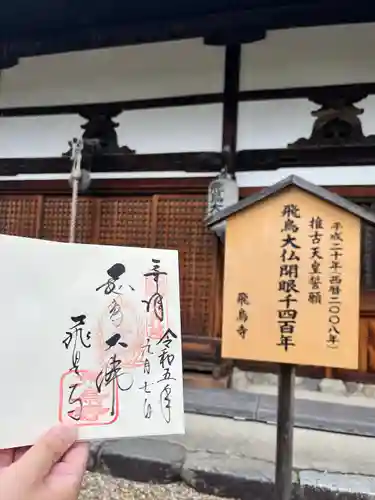 平成二十年(西暦二〇〇八年)
推古天皇誓願
飛鳥大仏開眼千四百年
飛鳥寺
奉拝
令和五年
元月七日
飛鳥大仏
飛鳥寺